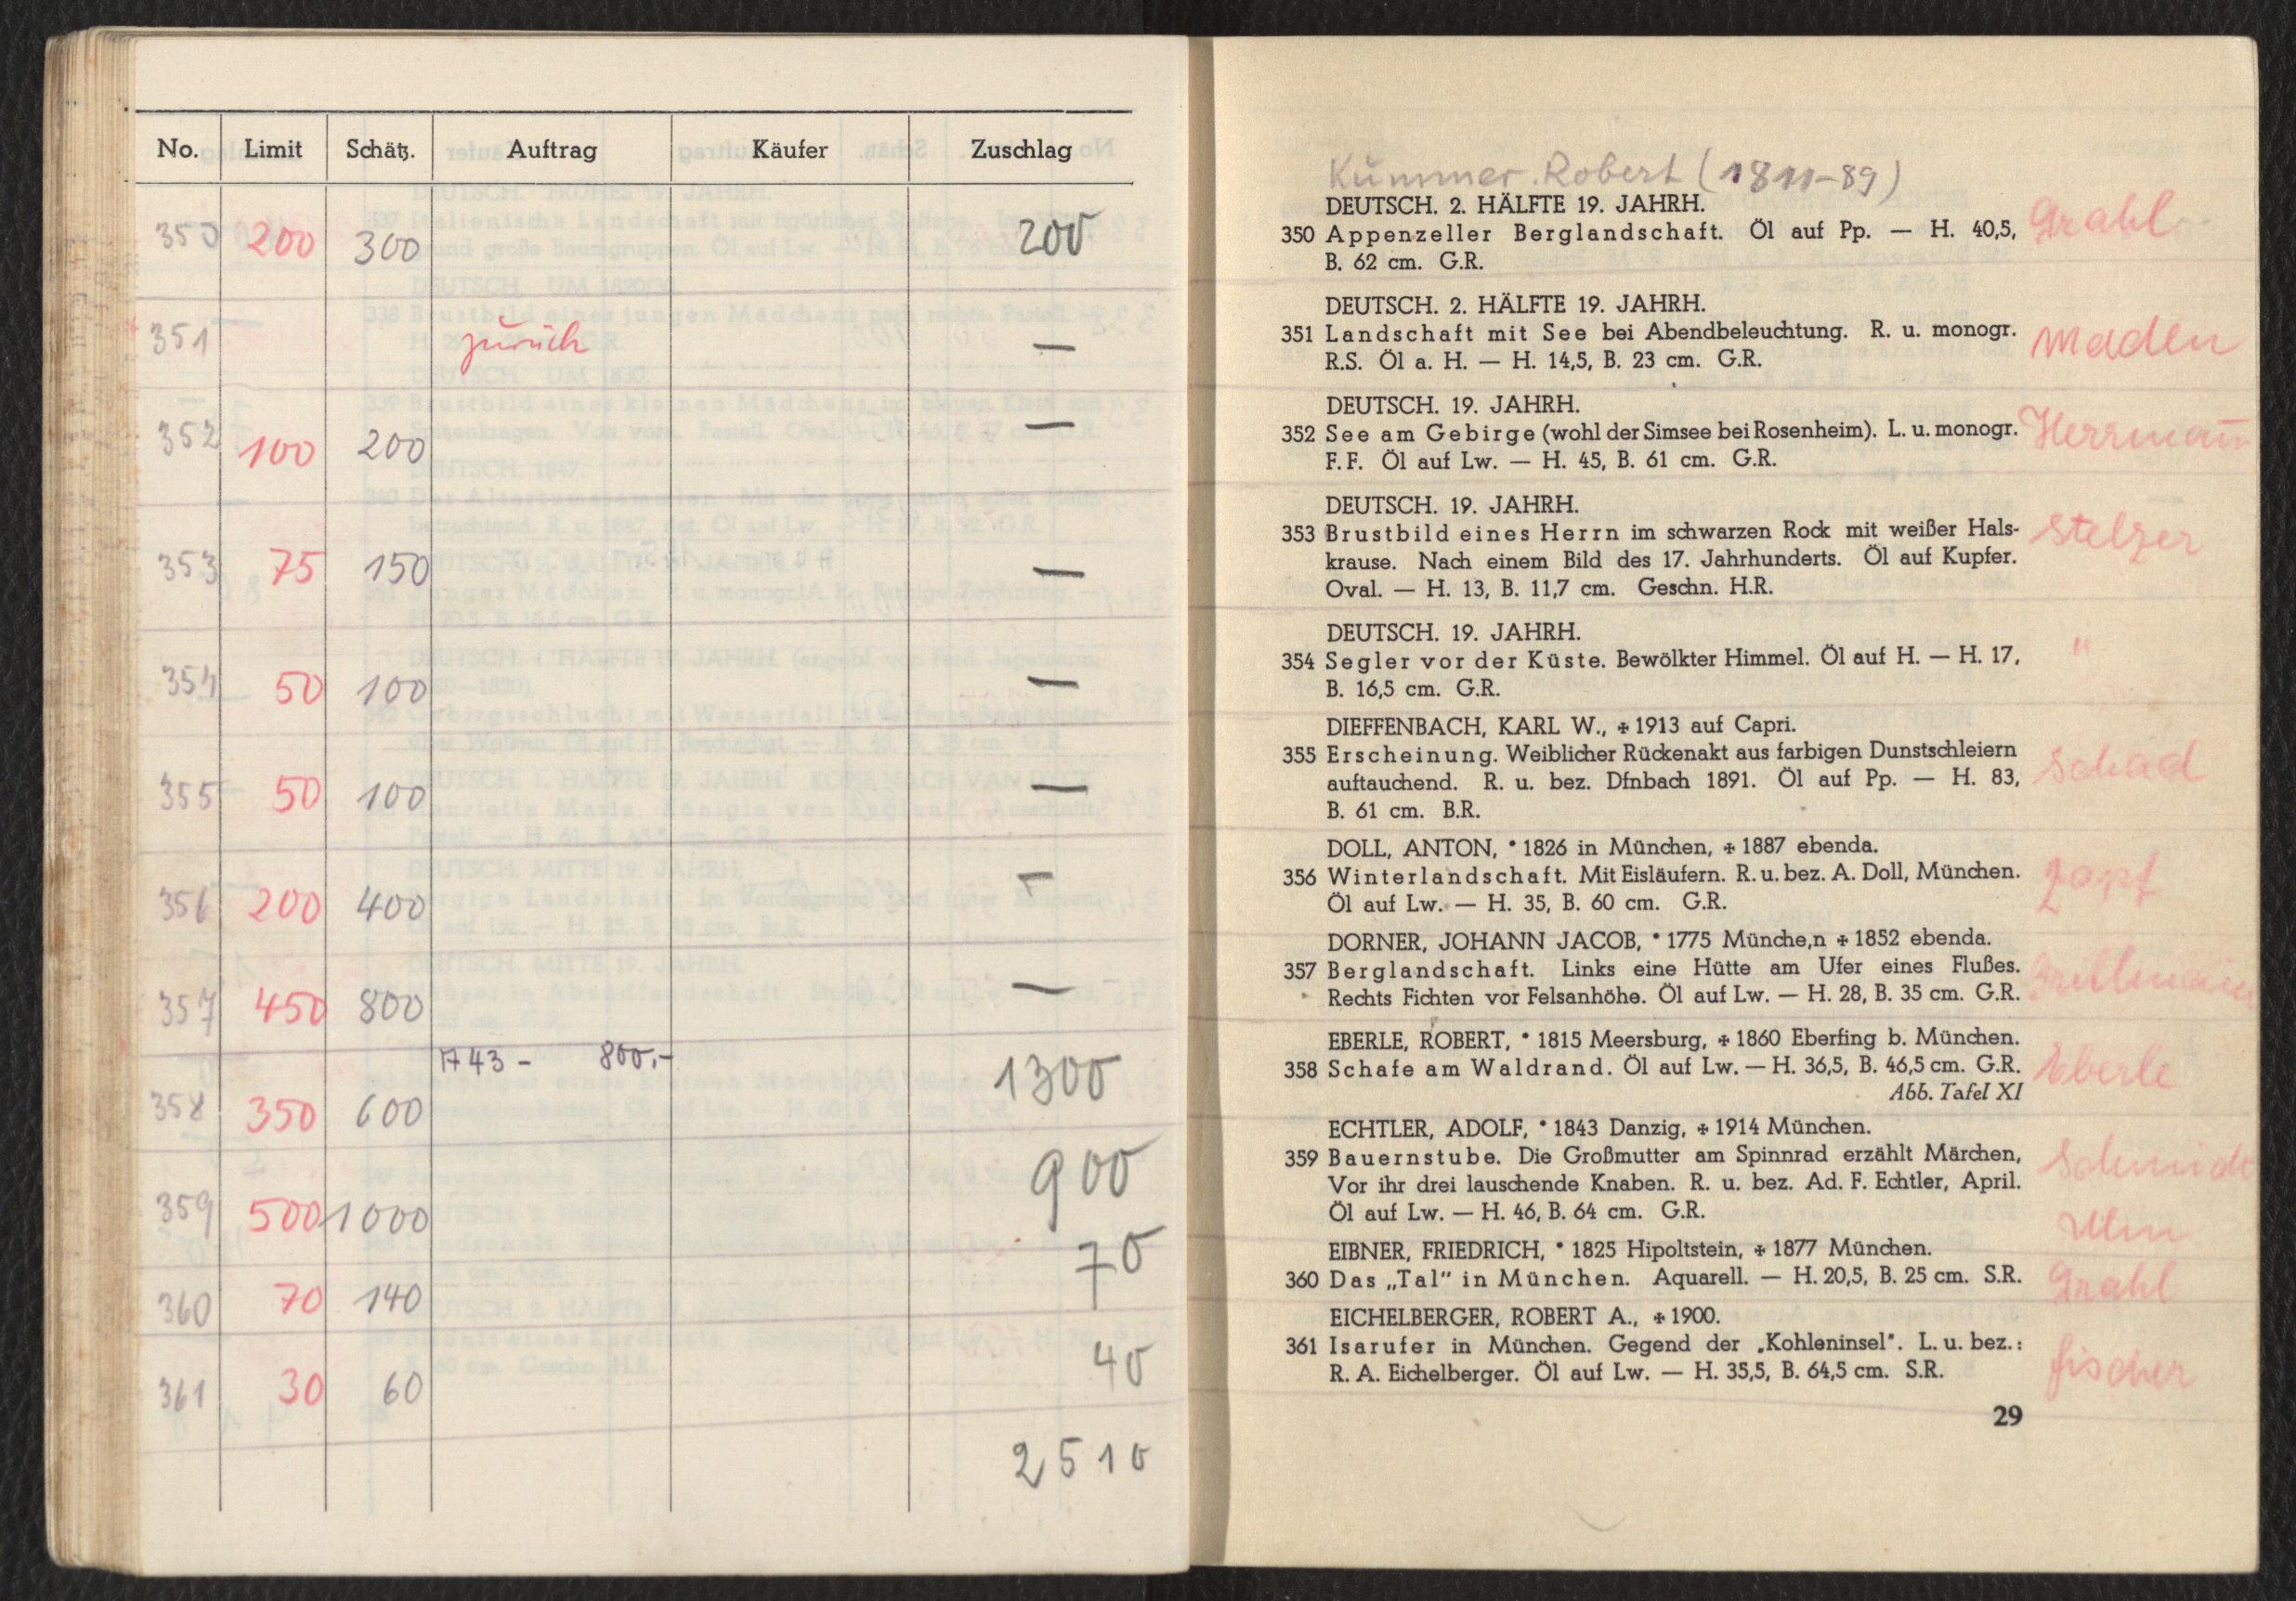 No. Limit Schätz. Auftrag Käufer Zuschlag
350 200 300 200
351 zurück —
352 100 200 —
353 75 150 —
354 50 100 —
355 50 100 —
356 200 400 —
357 450 800 —
1743 - 800,-
358 350 600 1300
359 500 1000 900
360 70 140 70
361 30 60 40
2510
Kummer Robert (1811-89)
DEUTSCH. 2. HÄLFTE 19. JAHRH.
350 Appenzeller Berglandschaft. Öl auf Pp. — H. 40,5, Grahl
B. 62 cm. G.R.
DEUTSCH. 2. HÄLFTE 19. JAHRH.
351 Landschaft mit See bei Abendbeleuchtung. R. u. monogr. Maden
R.S. Öl a. H. — H. 14,5, B. 23 cm. G.R.
DEUTSCH. 19. JAHRH.
352 See am Gebirge (wohl der Simsee bei Rosenheim). L. u. monogr. Herrmann
F. F. Öl auf Lw. — H. 45, B. 61 cm. G.R.
DEUTSCH. 19. JAHRH.
353 Brustbild eines Herrn im schwarzen Rock mit weißer Hals- Stelzer
krause. Nach einem Bild des 17. Jahrhunderts. Öl auf Kupfer.
Oval. — H. 13, B. 11,7 cm. Geschn. H.R.
DEUTSCH. 19. JAHRH.
354 Segler vor der Küste. Bewölkter Himmel. Öl auf H. — H. 17, "
B. 16,5 cm. G.R.
DIEFFENBACH, KARL W., ✠ 1913 auf Capri.
355 Erscheinung. Weiblicher Rückenakt aus farbigen Dunstschleiern Schad
auftauchend. R. u. bez. Dfnbach 1891. Öl auf Pp. — H. 83,
B. 61 cm. B.R.
DOLL, ANTON, * 1826 in München, ✠ 1887 ebenda.
356 Winterlandschaft. Mit Eisläufern. R. u. bez. A. Doll, München. Zapf
Öl auf Lw. — H. 35, B. 60 cm. G.R.
DORNER, JOHANN JACOB, * 1775 Münche,n ✠ 1852 ebenda.
357 Berglandschaft. Links eine Hütte am Ufer eines Flußes.
Rechts Fichten vor Felsanhöhe. Öl auf Lw. — H. 28, B. 35 cm. G.R.
EBERLE, ROBERT, * 1815 Meersburg, ✠ 1860 Eberfing b. München.
358 Schafe am Waldrand. Öl auf Lw. — H. 36,5, B. 46,5 cm. G.R. Eberle
Abb. Tafel XI
ECHTLER, ADOLF, * 1843 Danzig, ✠ 1914 München.
359 Bauernstube. Die Großmutter am Spinnrad erzählt Märchen, Schmidt
Vor ihr drei lauschende Knaben. R. u. bez. Ad. F. Echtler, April.
Öl auf Lw. — H. 46, B. 64 cm. G.R. Ulm
EIBNER, FRIEDRICH, * 1825 Hipoltstein, ✠ 1877 München.
360 Das „Tal" in München. Aquarell. — H. 20,5, B. 25 cm. S.R. Grahl
EICHELBERGER, ROBERT A., ✠ 1900.
361 Isarufer in München. Gegend der „Kohleninsel". L. u. bez.: Fischer
R. A. Eichelberger. Öl auf Lw. — H. 35,5, B. 64,5 cm. S.R.
29